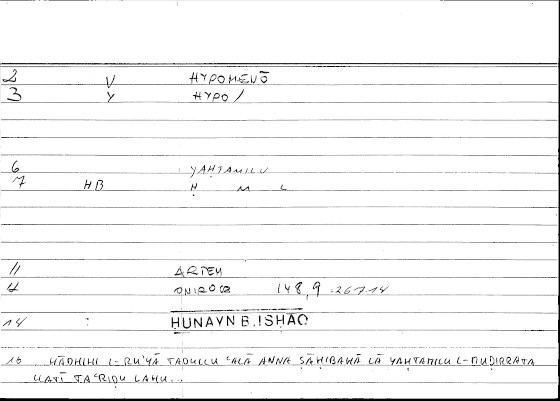 2 V HYPOMENŌ
3 Y HYPO/
6 YAḤTAMILU
7 HB Ḥ M L
11 ARTEM
12 ONIROCR 148,9 :267 14
14 : HUNAYN B. ISHAQ
16 HĀDHIHI L-RU'YĀ TADULLU ʿALĀ ANNA ṢĀḤIBAHĀ LĀ YAḤTAMILU L-MUḌIRRATA
LLATĪ TAʿRIḌU LAHU...